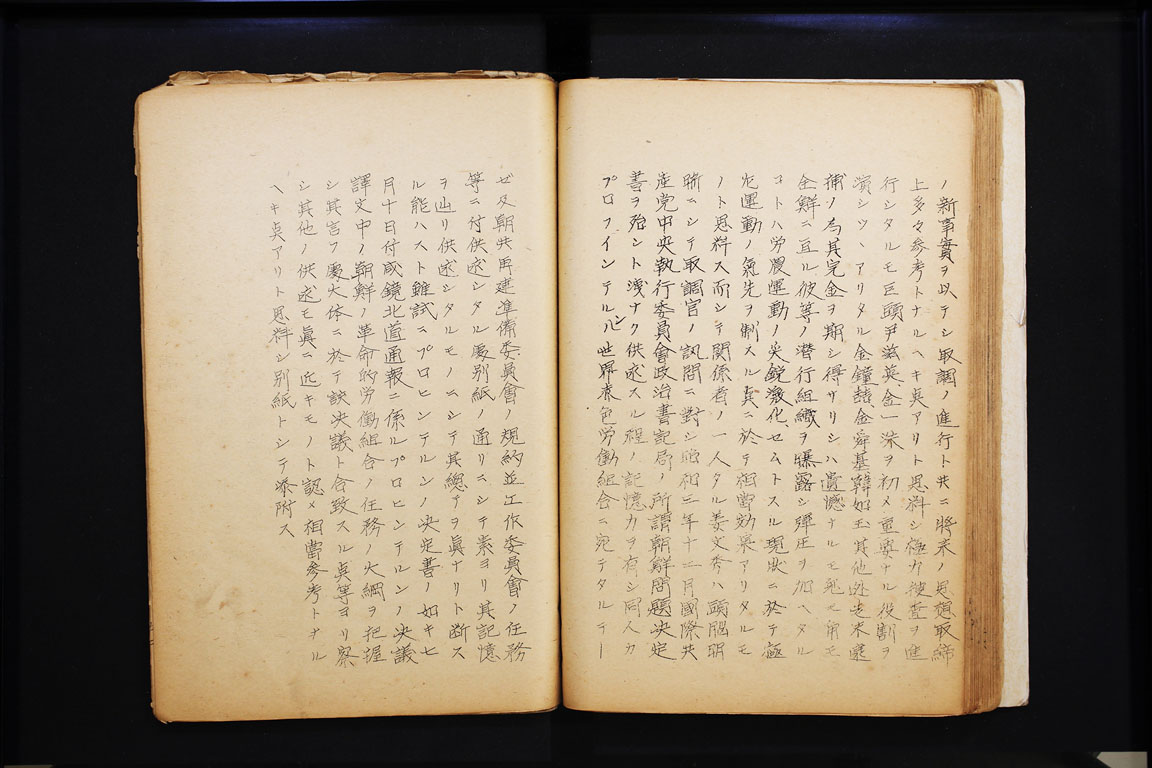 ノ新事實ヲ以テシ取調ノ進行ト共ニ將来ノ思想取締
上多々参考トナルヘキ点アリト思料シ極力捜査ヲ進
行シタルモ巨頭尹滋英、金一洙ヲ初メ重要ナル役割ヲ
演シツヽアリタル金鐘喆、金舜基、韓如玉其他外逃未逮
捕ノ為、其完全ヲ期シ得サリシハ遺憾ナルモ兎モ角モ
全鮮ニ亘ル彼等ノ潜行組織ヲ曝露シ弾圧ヲ加ヘタル
コトハ労農運動ノ尖鋭激化セムトスル現状ニ於テ極
左運動ノ気先ヲ制スル真ニ於テ相當効果アリタルモ
ノト思料ス而シテ関係者ノ一人タル姜文秀ハ頭脳明
晰ニシテ取調官ノ訊問ニ對シ昭和三年十二月國際共
産党中央執行委員會政治書記局ノ所謂朝鮮問題決定
書ヲ殆ント淺ナク供述スル程ノ記憶力ヲ有シ同人カ
プロフインテルン世界赤色労働組合ニ宛テタルテー
ゼ及朝共再建準備委員會ノ規約並工作委員會ノ任務
等ニ付供述シタル處別紙ノ通リニシテ素ヨリ其記憶
ヲ辿リ供述シタルモノニシテ其總テヲ眞ナリト断ス
ル能ハスト雖試ニプロヒンテルンノ決定書ノ如キ七
月十日付咸鏡北道通報ニ係ルプロヒンテルンノ決議
譯文中ノ朝鮮ノ革命的労働組合ノ任務ノ大綱ヲ把握
シ其言フ處大体ニ於テ該決議ト合致スル点等ヨリ察
シ其他ノ供述モ眞ニ近キモノト認メ相當参考トナル
ヘキ点アリト思料シ別紙トシテ添附ス